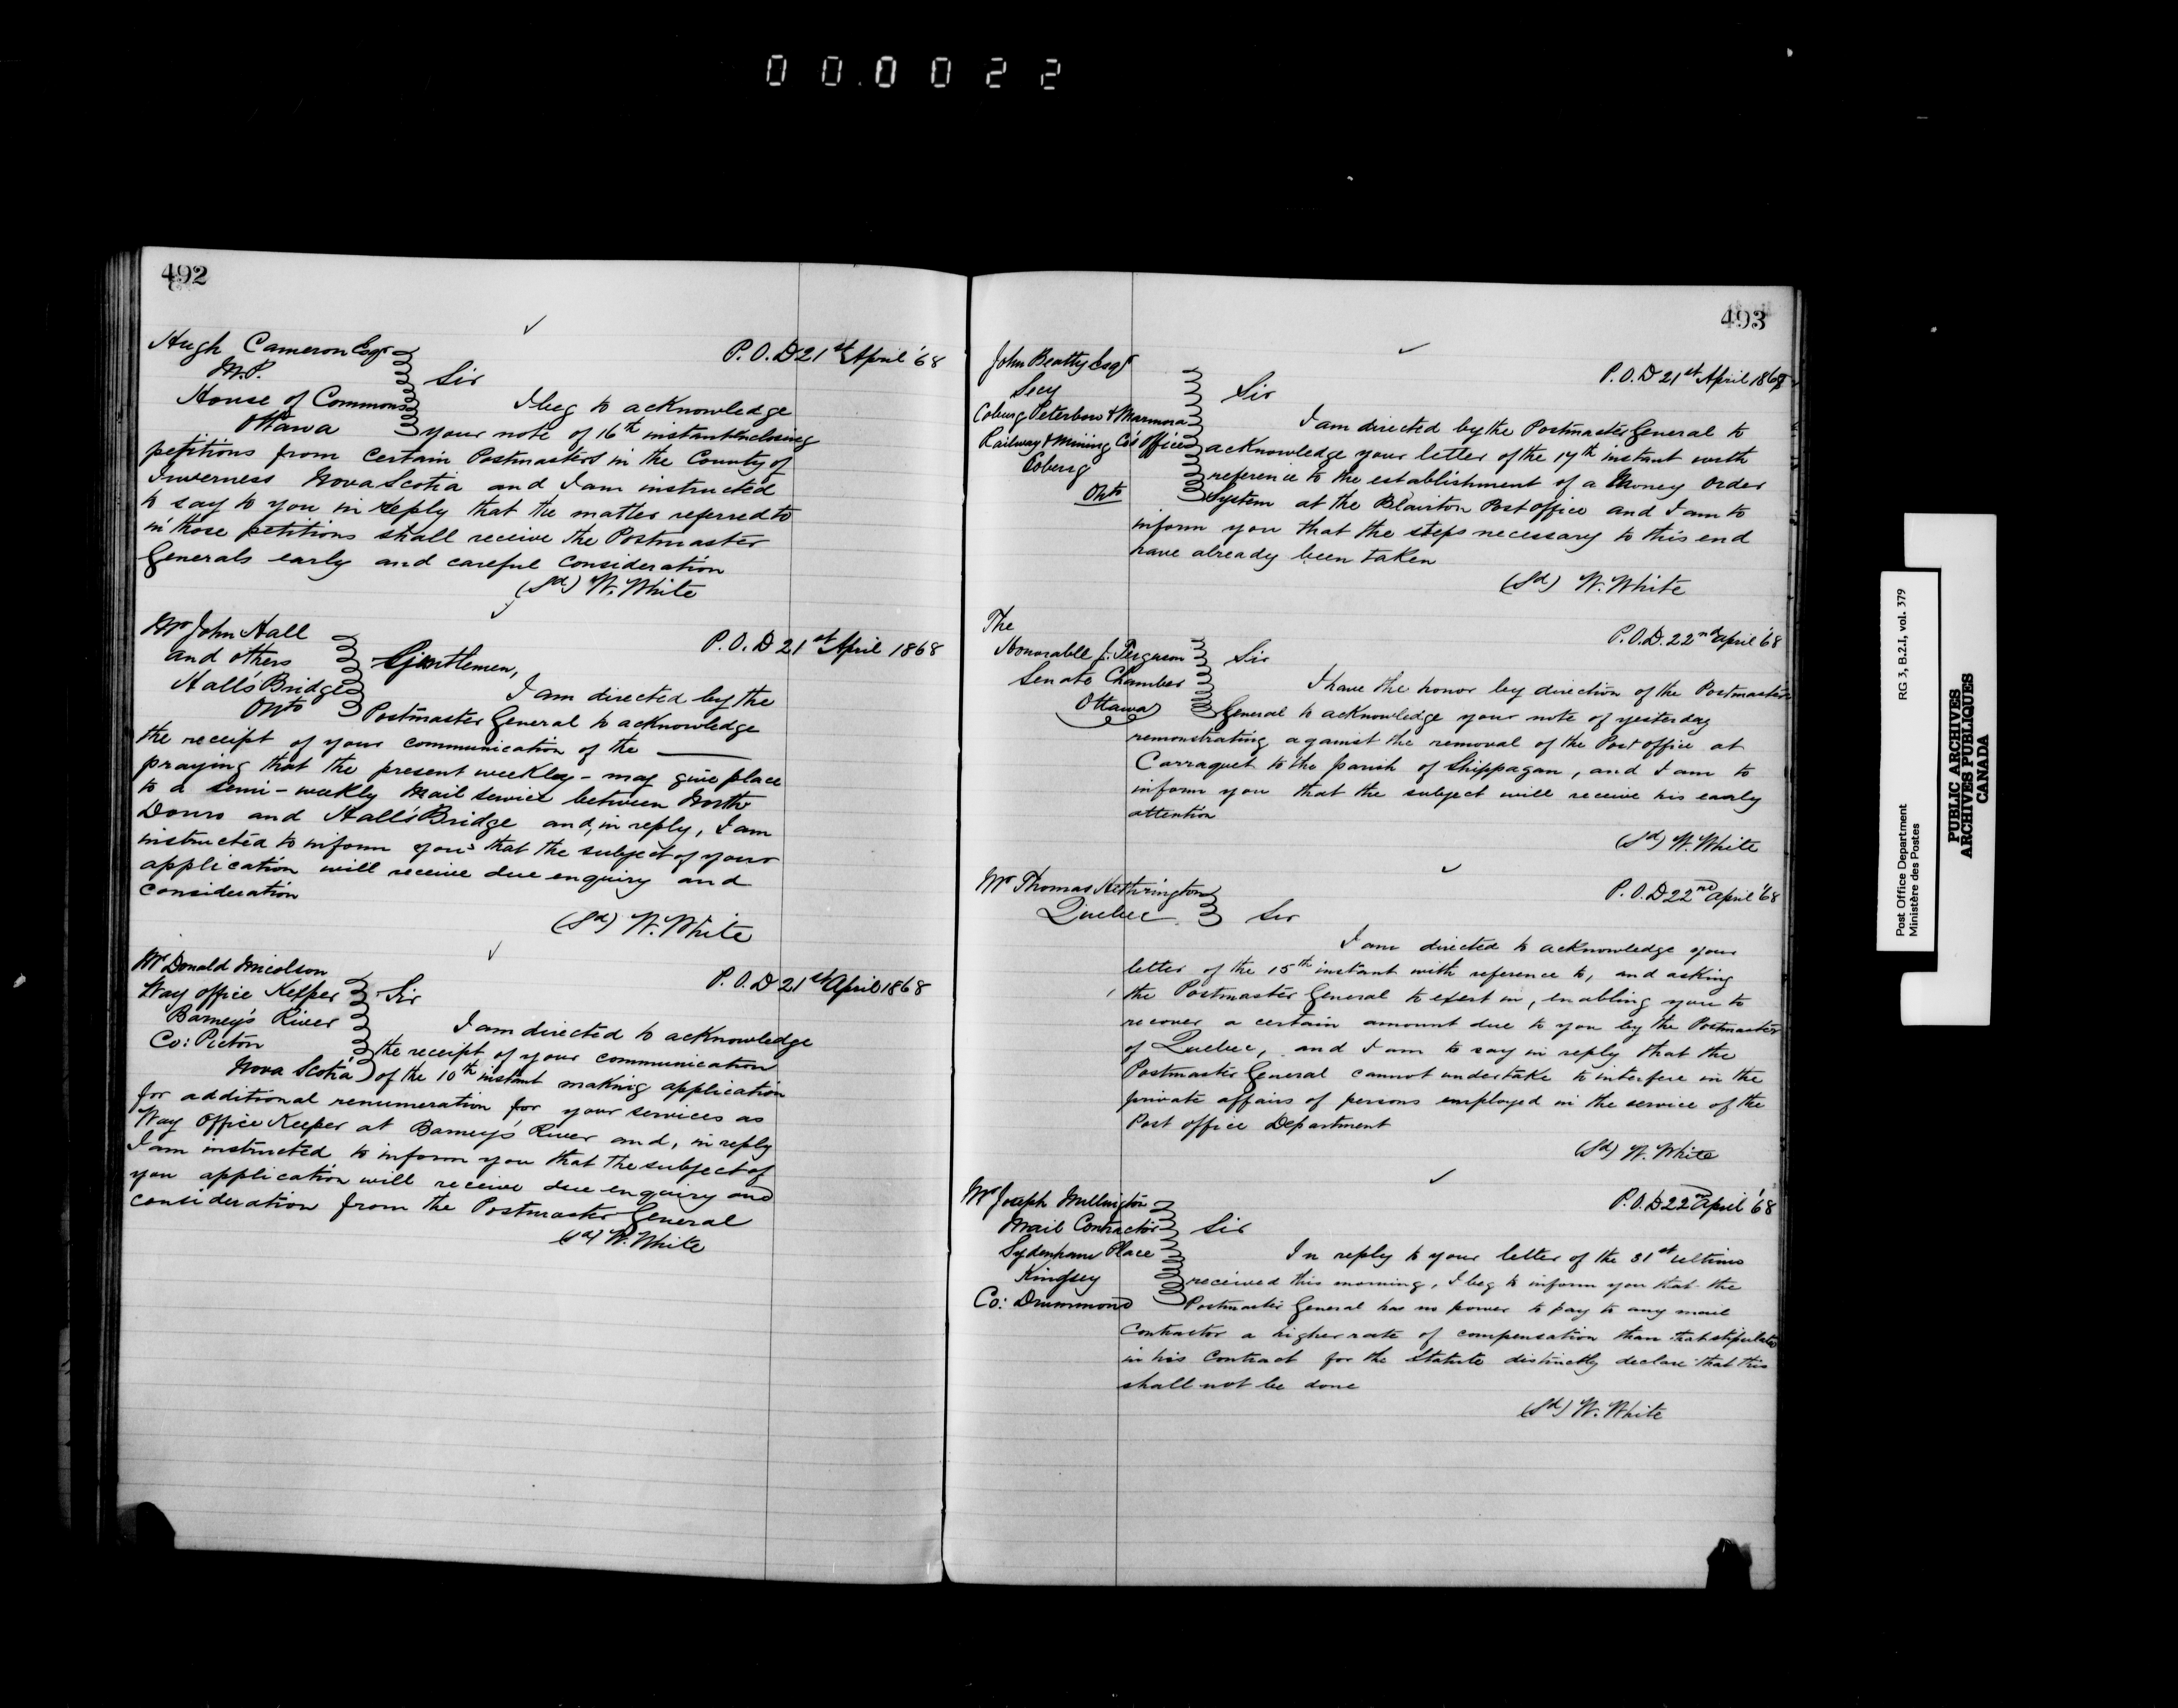 00.0022
492
Hugh Cameron Esqr
M.P.
House of Commons
Ottawa
P.O.D 21st April '68
Sir
I beg to acknowledge
your note of 16th instant enclosing
petitions from certain Postmasters in the County of
Inverness Nova Scotia and I am instructed
to say to you in reply that the matter referred to
in those petitions shall receive the Postmaster
Generals early and careful consideration
(Sd) W. White
Mr John Hall
and others
Hall's Bridge
Onto
P.O.D 21st April 1868
Gentlemen,
I am directed by the
Postmaster General to acknowledge
the receipt of your communication of the ———
praying that the present weekly - may give place
to a semi-weekly Mail service between North
Douro and Hall's Bridge and, in reply, I am
instructed to inform you that the subject of your
application will receive due enquiry and
consideration
(Sd) W. White
Mr Donald
Way office Keeper
Barney's River
Co: Picton
Nova Scotia
P.O.D 21st April 1868
Sir
I am directed to acknowledge
the receipt of your communication
of the 10th instant making application
for additional renumeration for your services as
Way Office Keeper at Barney's River and, in reply
I am instructed to inform you that the subject of
you application will receive due enquiry and
consideration from the Postmaster General
(Sd) W. White
493
John Beatty Esqr
Secy
Coburg Peterboro & Marmora
Railway & Mining Co's Office
Coburg
Onto
P.O.D 21st April 1868
Sir
I am directed by the Postmaster General to
acknowledge your letter of the 17th instant with
reference to the establishment of a Money Order
System at the Blairton Post office and I am to
inform you that the steps necessary to this end
have already been taken
(Sd) W. White
The
Honorable J. Ferguson
Senate Chamber
Ottawa
P.O.D. 22nd April '68
Sir
I have the honor by direction of the Postmaster
General to acknowledge your note of yesterday
remonstrating against the removal of the Post office at
Carraquet to the parish of Shippagan, and I am to
inform you that the subject will receive his early
attention
(Sd) W. White
Mr Thomas Hethrington
Quebec
P.O.D 22nd April '68
Sir
I am directed to acknowledge your
letter of the 15th instant with reference to, and asking
the Postmaster General to exert in, enabling you to
recover a certain amount due to you by the Postmaster
of Quebec, and I am to say in reply that the
Postmaster General cannot undertake to interfere in the
private affairs of persons employed in the service of the
Post office Department
(Sd) W. White
Mr Joseph Millington
Mail Contractor
Sydenham Place
Kingsey
Co: Drummond
P.O.D 22nd April '68
Sir
In reply to your letter of the 31st ultimo
received this morning, I beg to inform you that the
Postmaster General has no power to pay to any mail
contractor a higher rate of compensation than that stipulated
in his contract for the Statute distinctly declare that this
shall not be done
(Sd) W. White
Post Office Department RG 3, B.2.I, vol. 379
Ministère des Postes
PUBLIC ARCHIVES
ARCHIVES PUBLIQUES
CANADA